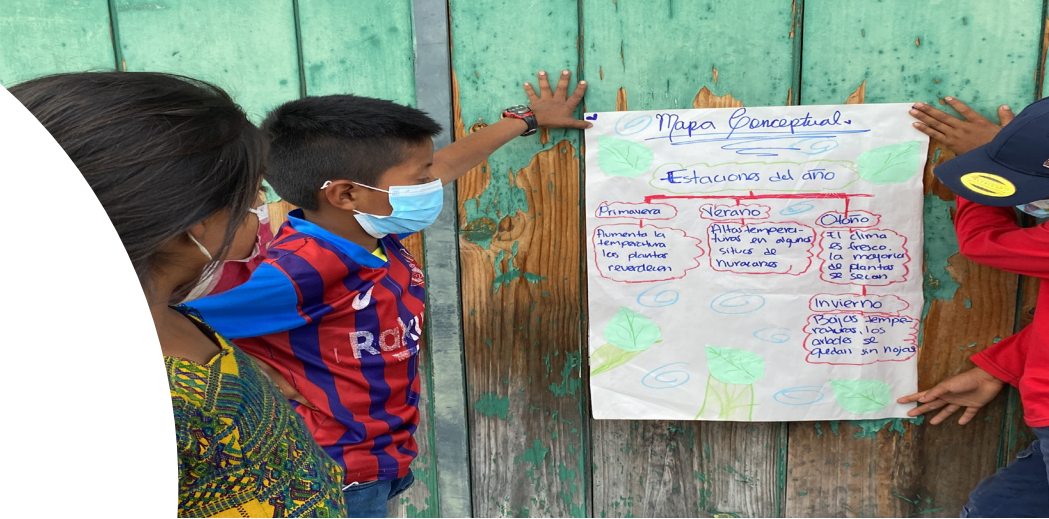 Mapa Conceptual.
Estaciones del año
Primavera
Aumenta la
temperatura
las plantas
reverdecen
Verano
Altas tempera-
turas en algunos
situos de
huracanes
Otoño
El clima
es fresco.
la mayoria
de plantas
se secan
Invierno
Bajas tempe-
raturas, los
arboles se
quedan sin hojas